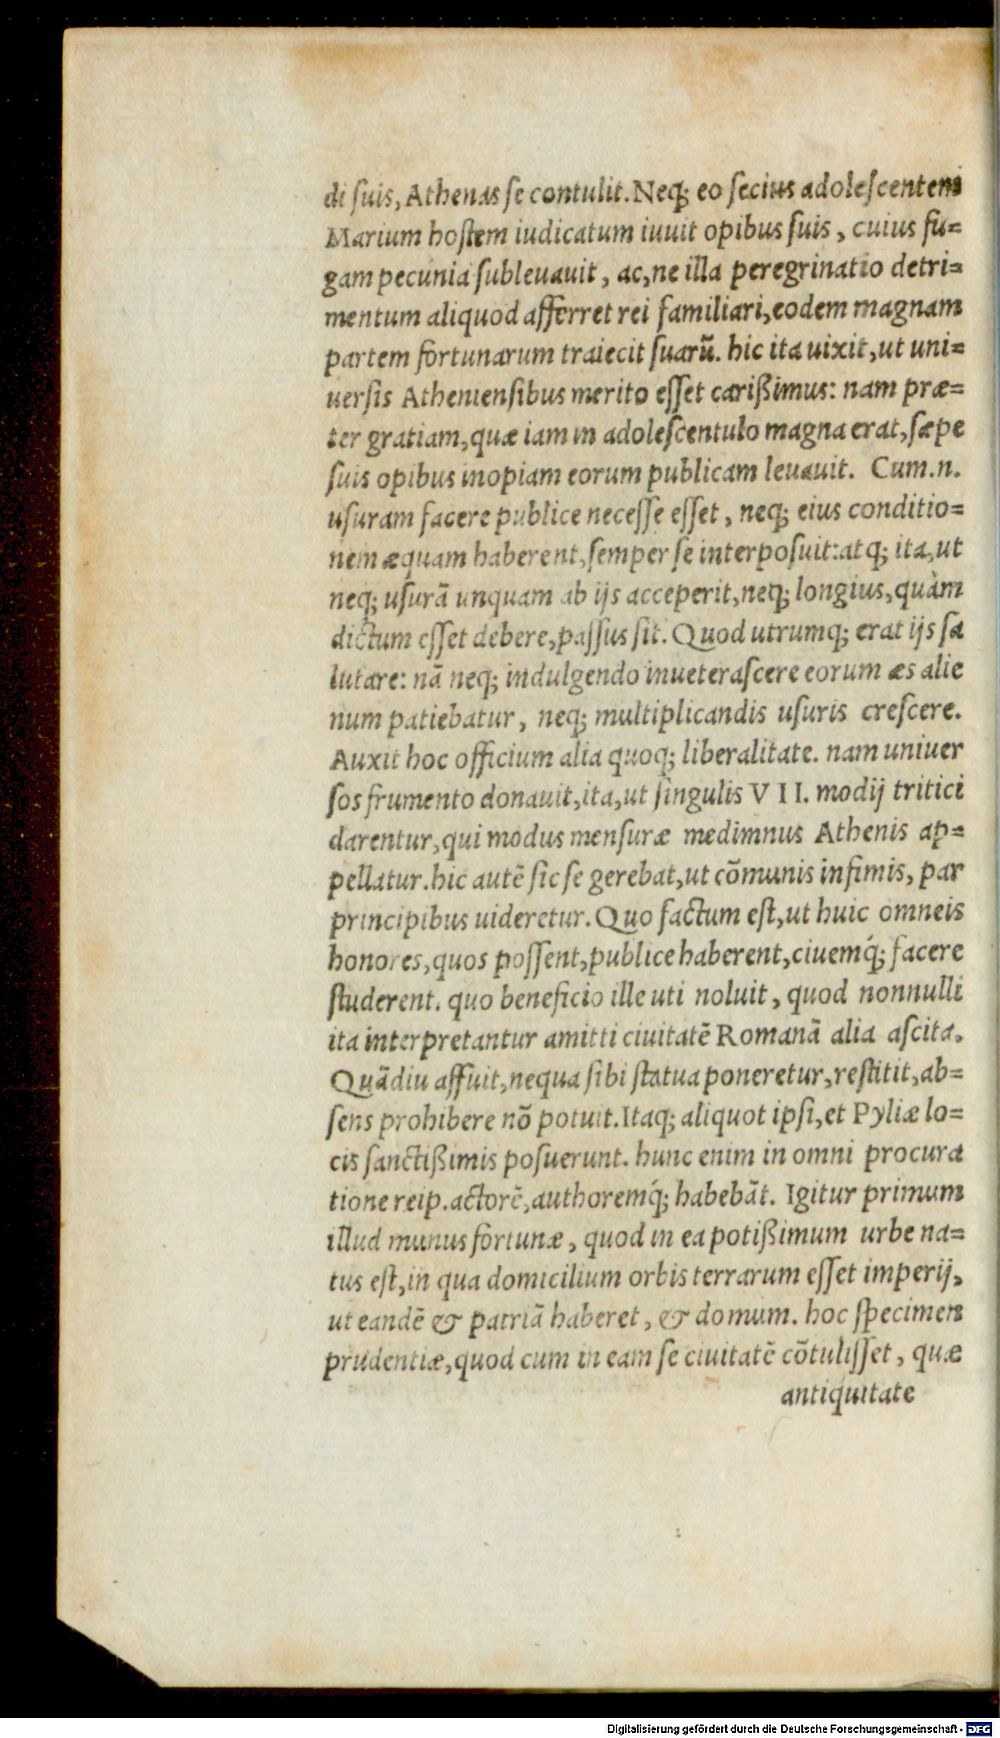 di ſuis, Athenas ſe contulit. Neq; eo ſecius adoleſcentem
Marium hoſtem iudicatum iuuit opibus ſuis, cuius fu=
gam pecunia ſubleuauit, ac, ne illa peregrinatio detri=
mentum aliquod afferret rei familiari, eodem magnam
partem fortunarum traiecit ſuarũ. hic ita uixit, ut uni=
uerſis Athenienſibus merito eſſet carißimus: nam præ=
ter gratiam, quæ iam in adoleſcentulo magna erat, ſæpe
ſuis opibus inopiam eorum publicam leuauit. Cum.n.
uſuram facere publice neceſſe eſſet, neq; eius conditio=
nem æquam haberent, ſemper ſe interpoſuit: atq; ita, ut
neq; uſurã unquam ab ijs acceperit, neq; longius, quàm
dictum eſſet debere, paſſus ſit. Quod utrumq; erat ijs ſa
lutare: nã neq; indulgendo inueteraſcere eorum æs alie
num patiebatur, neq; multiplicandis uſuris creſcere.
Auxit hoc officium alia quoq; liberalitate. nam uniuer
ſos frumento donauit, ita, ut ſingulis VII. modij tritici
darentur, qui modus menſuræ medimnus Athenis ap=
pellatur. hic autẽ ſic ſe gerebat, ut cõmunis infimis, par
principibus uideretur. Quo factum eſt, ut huic omneis
honores, quos poſſent, publice haberent, ciuemq́; facere
ſtuderent. quo beneficio ille uti noluit, quod nonnulli
ita interpretantur amitti ciuitatẽ Romanã alia aſcita.
Quãdiu affuit, nequa ſibi ſtatua poneretur, reſtitit, ab=
ſens prohibere nõ potuit. Itaq; aliquot ipſi, et Pyliæ lo=
cis ſanctißimis poſuerunt. hunc enim in omni procura
tione reip. actorẽ, authoremq́; habebãt. Igitur primum
illud munus fortunæ, quod in ea potißimum urbe na=
tus eſt, in qua domicilium orbis terrarum eſſet imperij,
ut eandẽ & patriã haberet, & domum. hoc ſpecimen
prudentiæ, quod cum in eam ſe ciuitatẽ cõtuliſſet, quæ
antiquitate
Digitalisierung gefördert durch die Deutsche Forschungsgemeinschaft - DFG